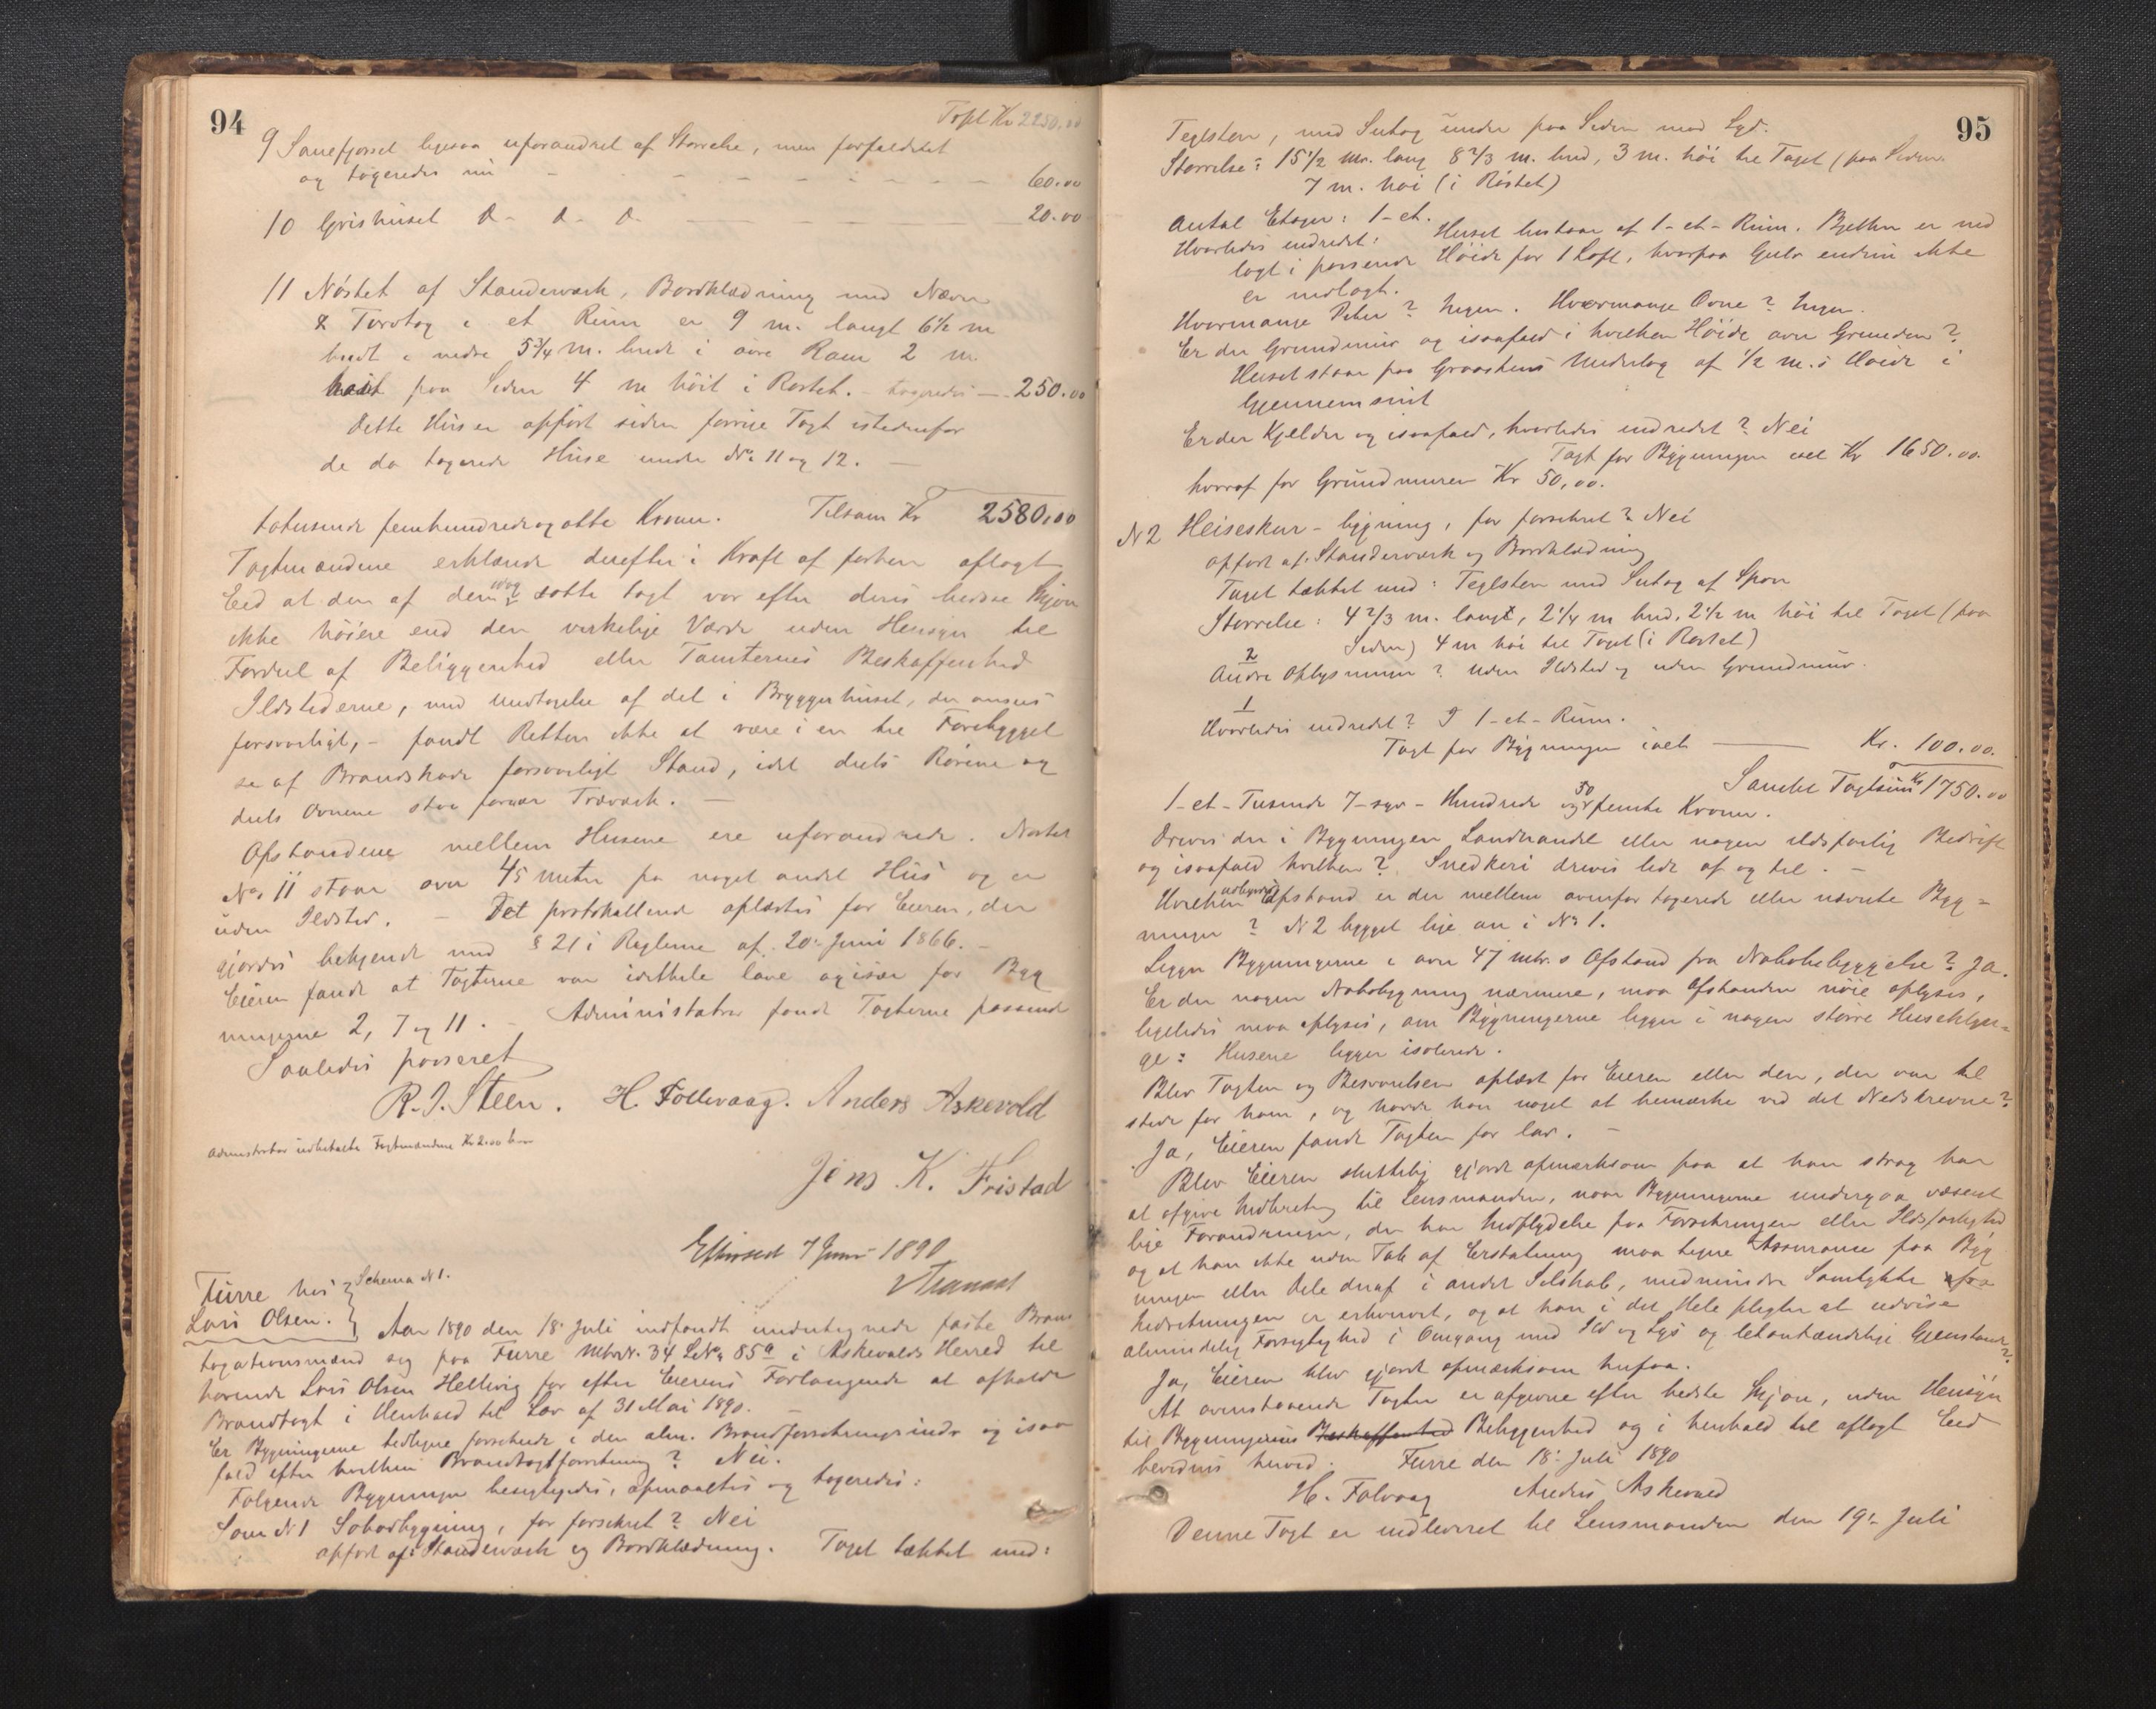 94
Topl Kr 2250,00
9 Sauefjøset ligesaa uforandret af Størrelse, men forfaldent
og taxeredes nu - - - - - - - - 60.00
10 Grishuset D- D- D. 20.00
11 Nøstet af Standerværk, Bordklædning med Næver
& Torvtag i et Rum er 9 m. langt 6½ m
bredt i nedre 5¾ m. bredt i øvre Ram 2 m.
høit paa Siden 4 m høit i Røstet. - taxeredes - 250.00
Dette Hus er opført siden forrige Taxt istedenfor
de da taxerede Huse under No 11 og 12. -
totusende femhundredeogotte Kroner. Tilsam Kr 2580,00
Taxtmændene erklærede derefter i Kraft af forhen aflagt
Eed at den af dem idag satte taxt var efter deres bedste Skjøn
ikke høiere end den virkelige Værdi uden Hensyn til
Fordel af Beliggenhed eller Tomternes Beskaffenhed
Ildstederne, med Undtagelse af det i Bryggerhuset, der ansees
forsvarligt, - fandt Retten ikke at være i en til Forebyggel
se af Brandskade forsvarligt Stand, idet deels Rørene og
deels Ovnene staa fornær Træværk. -
Afstandene mellem Husene ere uforandrede. Nøstet
No. 11 staar over 45 meter fra noget andet Hus og er
uden Ildsted. - Det protokollerede oplæstes for Eieren, der
gjordes bekjendt med § 21 i Reglerne af 20. Juni 1866. -
Eieren fandt at Taxterne var idethele lave og især for Byg
ningerne 2, 7 og 11. - Administrator fandt Taxterne passende
Saaledes passeret
R. J. Steen. H. Follevaag. Anders Askevold
Administrator udbetalte Taxtmændene Kr 2.00 hver
Jens K. Fristad
Efterseet 7 Juni 1890
Furre hos
Lars Olsen. } Schema N 1.
Aar 1890 den 18. Juli indfandt undertegnede faste Brand
taxationsmænd sig paa Furre Mtrn. 34 LNo 85a i Askevolds Herred til
hørende Lars Olsen Hellevig for efter Eierens Forlangende at afholde
Brandtaxt i Henhold til Lov af 31 Mai 1890. -
Er Bygningerne tidligere forsikrede i den alm. Brandforsikringsindr og isaa
fald efter hvilken Brandtaxtforretning? Nei.
Følgende Bygninger besigtigedes, opmaaltes og taxeredes:
Som N 1 Sobodbygning, før forsikret? Nei
opført af: Standerværk og Bordklædning. Taget tækket med:
95
Teglsten, med Sutag under paa Siden mod Syd.
Størrelse: 15½ m. lang 8 2/3 m. bred, 3 m. høi til Taget (paa Siden
7 m. høi (i Røstet)
Antal Etager: 1 - et.
Hvorledes indredet: Huset bestaar af 1 - et - Rum. Bjelker er ned
lagt i passende Høide for 1 Loft, hvorpaa Gulv endnu ikke
er nedlagt.
Hvormange Piber? Ingen. Hvormange Ovne? Ingen.
Er der Grundmur og isaafald i hvilken Høide over Grunden?
Huset staar paa Graastens Underlag af ½ m.s Høide i
Gjennemsnit
Er der Kjelder og isaafald, hvorledes indredet? Nei
Taxt for Bygningen ialt Kr 1650.00.
hvoraf for Grundmuren Kr 50,00.
N 2 Heiseskur - bygning, før forsikret? Nei
opført af: Standerværk og Bordklædning
Taget tækket med: Teglsten med Sutag af Spon
Størrelse: 4 2/3 m. langt, 2¼ m bred, 2½ m høi til Taget (paa
Siden) 4 m høi til Taget (i Røstet)
2
Andre Oplysninger? uden Ildsted og uden Grundmur.
1
Hvorledes indredet? I 1 - et - Rum.
Taxt for Bygningen ialt Kr. 100.00.
Samlet Taxtsum Kr 1750.00
1 - et - Tusinde 7 - syv - Hundrede og 50 femti Kroner.
Drives der i Bygningen Landhandel eller nogen ildsfarlig Bedrift
og isaafald hvilken? Snedkeri drives lidt af og til. -
Hvilken indbyrdes Afstand er der mellem ovenfor taxerede eller nævnte Byg=
ninger? N 2 bygget lige an i No 1.
Ligger Bygningerne i over 47 mtr.s Afstand fra Nabobebyggelse? Ja.
Er der nogen Nabobygning nærmere, maa Afstanden nøie oplyses,
ligeledes maa oplyses, om Bygningerne ligger i nogen større Huseklyn=
ge: Husene ligger isolerede.
Blev Taxten og Besvarelsen oplæst for Eieren eller den, der var til
stede for ham, og havde han noget at bemærke ved det Nedskrevne?
Ja, Eieren fandt Taxten for lav. -
Blev Eieren sluttelig gjort opmærksom paa at han strax har
at afgive Indberetn til Lensmanden, naar Bygningerne undergaa væsent
lige Forandringer, der har Indflydelse paa Forsikringen eller Ildsfarlighed
og at han ikke uden Tab af Erstatning maa tegne Assurance paa Byg
ningen eller Dele deraf i andet Selskab, medmindre Samtykke fra
Indretningen er erhvervet, og at han i det Hele pligter at udvise
almindelig Forsigtighed i Omgang med Ild og Lys og letantændelige Gjenstande?
Ja, Eieren blev gjort opmærksom herpaa.
At ovenstaaende Taxter er afgivne efter bedste Skjøn, uden Hensyn
til Bygningernes Beskaffenhed Beliggenhed og i henhold til aflagt Eed
bevidnes herved. Furre den 18. Juli 1890
H. Folvaag Andres Askevold
Denne Taxt er indleveret til Lensmanden den 19. Juli